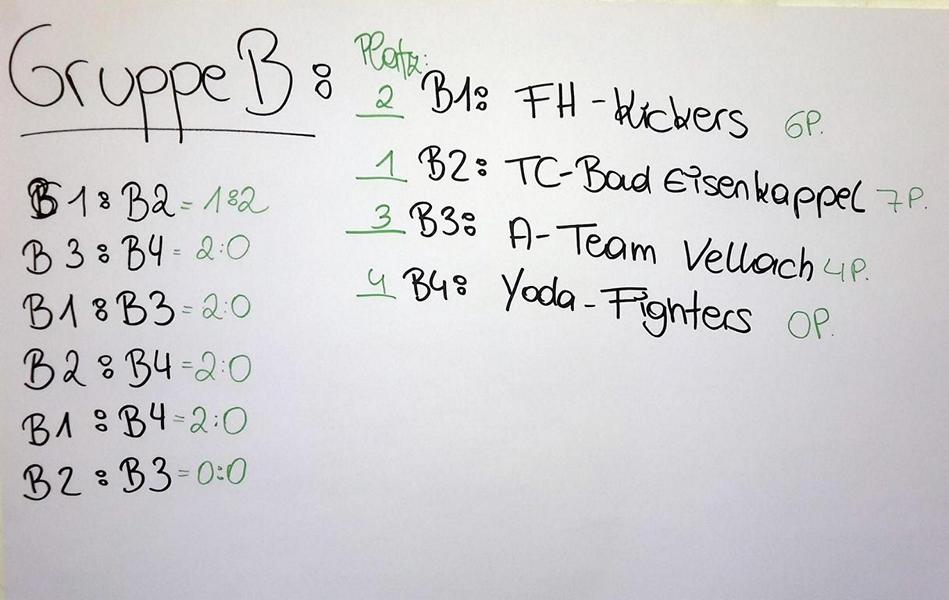 Gruppe B:
Platz:
2 B1: FH-Kickers 6P.
1 B2: TC-Bad Eisenkappel 7P.
3 B3: A-Team Vellach 4P.
4 B4: Yoda-Fighters 0P.
B1:B2=1:2
B3:B4=2:0
B1:B3=2:0
B2:B4=2:0
B1:B4=2:0
B2:B3=0:0